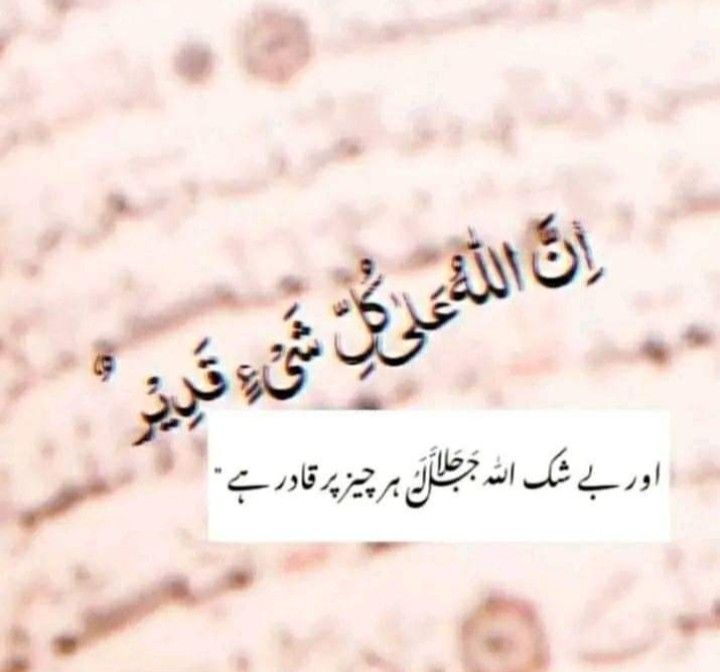 اِنَّ اللّٰهَ عَلٰى كُلِّ شَىْءٍ قَدِيْر
اور بے شک اللہ جَلَّ جَلَالُهٗ ہر چیز پر قادر ہے "